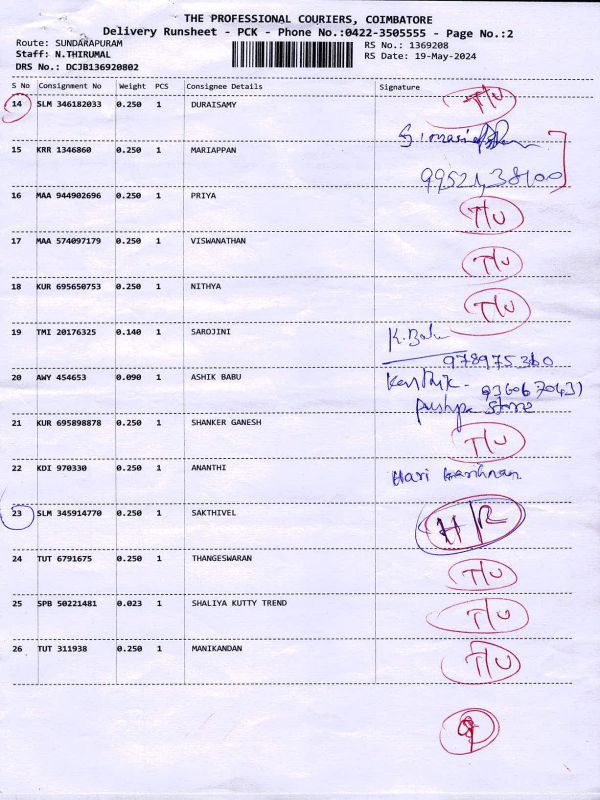 THE PROFESSIONAL COURIERS, COIMBATORE
Delivery Runsheet - PCK - Phone No.:0422-3505555 - Page No.:2
Route: SUNDARAPURAM RS No.: 1369208
Staff: N.THIRUMAL RS Date: 19-May-2024
DRS No.: DCJB136920802
S No Consignment No Weight PCS Consignee Details Signature
14 SLM 346182033 0.250 1 DURAISAMY T/U
15 KRR 1346860 0.250 1 MARIAPPAN
16 MAA 944902696 0.250 1 PRIYA T/U
17 MAA 574097179 0.250 1 VISWANATHAN T/U
18 KUR 695650753 0.250 1 NITHYA T/U
19 TMI 20176325 0.140 1 SAROJINI K. Balu
978975360
20 AWY 454653 0.090 1 ASHIK BABU Karthik -
Pushpa Store
21 KUR 695898878 0.250 1 SHANKER GANESH T/U
22 KDI 970330 0.250 1 ANANTHI Hari
23 SLM 345914770 0.250 1 SAKTHIVEL H/R
24 TUT 6791675 0.250 1 THANGESWARAN T/U
25 SPB 50221481 0.023 1 SHALIYA KUTTY TREND T/U
26 TUT 311938 0.250 1 MANIKANDAN T/U